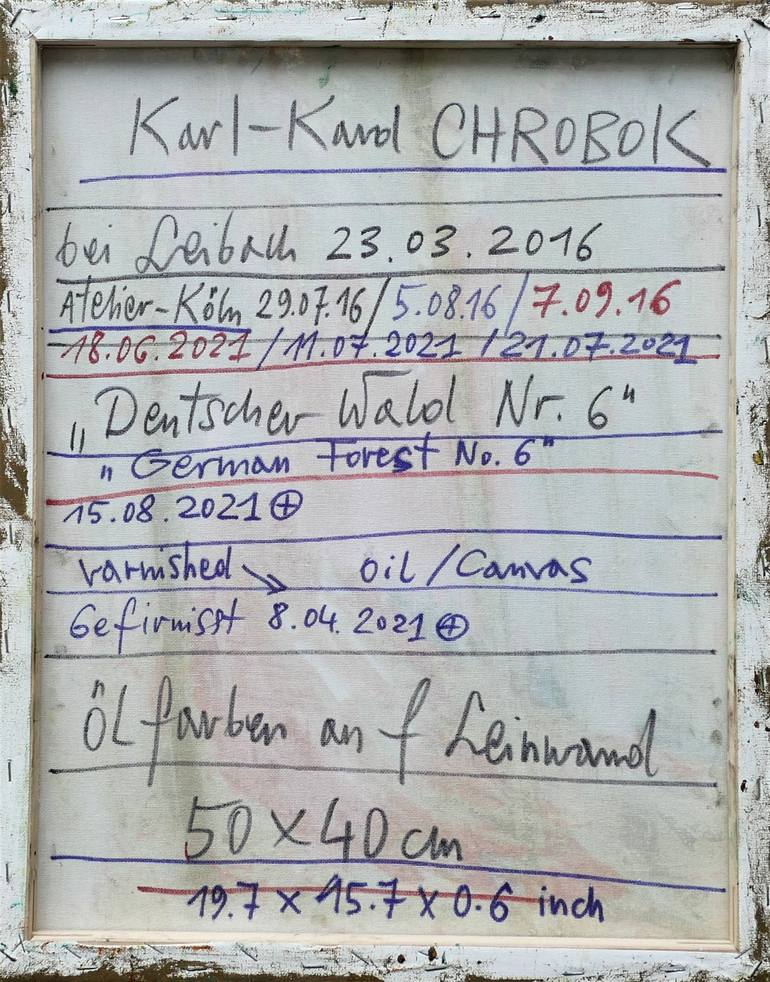 Karl-Karol CHROBOK
bei Leibach 23.03.2016
Atelier-Köln 29.07.16/5.08.16/7.09.16
18.06.2021/11.07.2021/21.07.2021
„Deutscher Wald Nr. 6"
„German Forest No. 6"
15.08.2021⊕
varnished oil/Canvas
Gefirnisst 8.04.2021⊕
Ölfarben auf Leinwand
50x40cm
19.7 x 15.7 x 0.6 inch